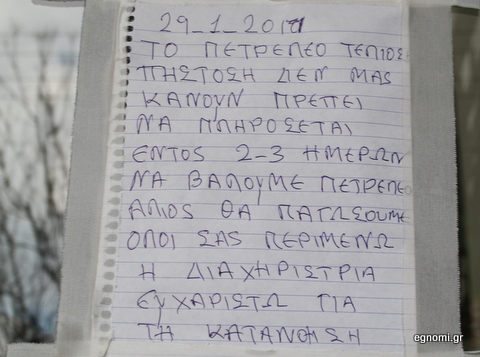 29_1_2011
ΤΟ ΠΕΤΡΕΛΕΟ ΤΕΛΙΟΣΕ
ΠΗΣΤΟΣΗ ΔΕΝ ΜΑΣ
ΚΑΝΟΥΝ ΠΡΕΠΕΙ
ΝΑ ΠΛΗΡΟΣΕΤΑΙ
ΕΝΤΟΣ 2-3 ΗΜΕΡΩΝ
ΝΑ ΒΑΛΟΥΜΕ ΠΕΤΡΕΛΕΟ
ΑΛΙΟΣ ΘΑ ΠΑΓΩΣΟΥΜΕ
ΟΛΟΙ ΣΑΣ ΠΕΡΙΜΕΝΩ
Η ΔΙΑΧΗΡΙΣΤΡΙΑ
ΕΥΧΑΡΙΣΤΩ ΓΙΑ
ΤΗ ΚΑΤΑΝΟΗΣΗ
egnomi.gr